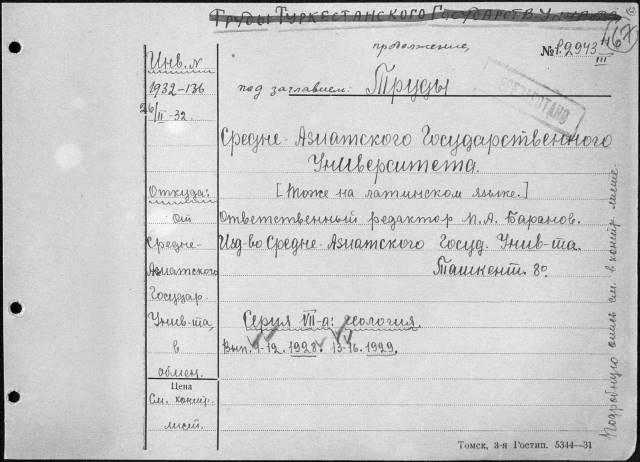 Труды Туркестанского Государств. Ун-та
продолжение
167
№ 1.2943
III
Инв. №
1932-136
26/II-32.
под заглавием: Труды
Средне-Азиатского Государственного
Университета.
Откуда:
[Тоже на латинском языке.]
от
Ответственный редактор П.А. Баранов.
Средне-
Изд-во Средне-Азиатского Госуд. Унив-та.
Азиатского
Ташкент. 8°.
Государ.
Унив-та,
Серия VII-а: геология.
в
Вып. 1-12. 1928. 13-16. 1929.
обмен.
Цена
См. контр.
лист.
Подробную опись см. в контр. листе
Томск, 3-я Гостип. 5344—31